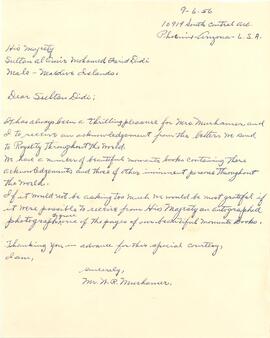 9-6-56
10919 South Central Ave
Phoenix - Arizona - U.S.A.
His Majesty
Sultan al Amir Mohamed Farid Didi
Male - Maldive Islands.
Dear Sultan Didi;
It has always been a thrilling pleasure for Mrs Murhamer, and
I to receive an acknowledgement from the letters we send
to Royalty throughout the World.
We have a number of beautiful momento books containing these
acknowledgements and those of other imminent persons throughout
the World.
If it would not be asking too much we would be most grateful if
it were possible to receive from His Majesty an autographed
photograph to grace one of the pages of our beautiful momento books.
Thanking you in advance for this special courtesy,
I am,
Sincerely,
Mr. W. P. Murhamer.